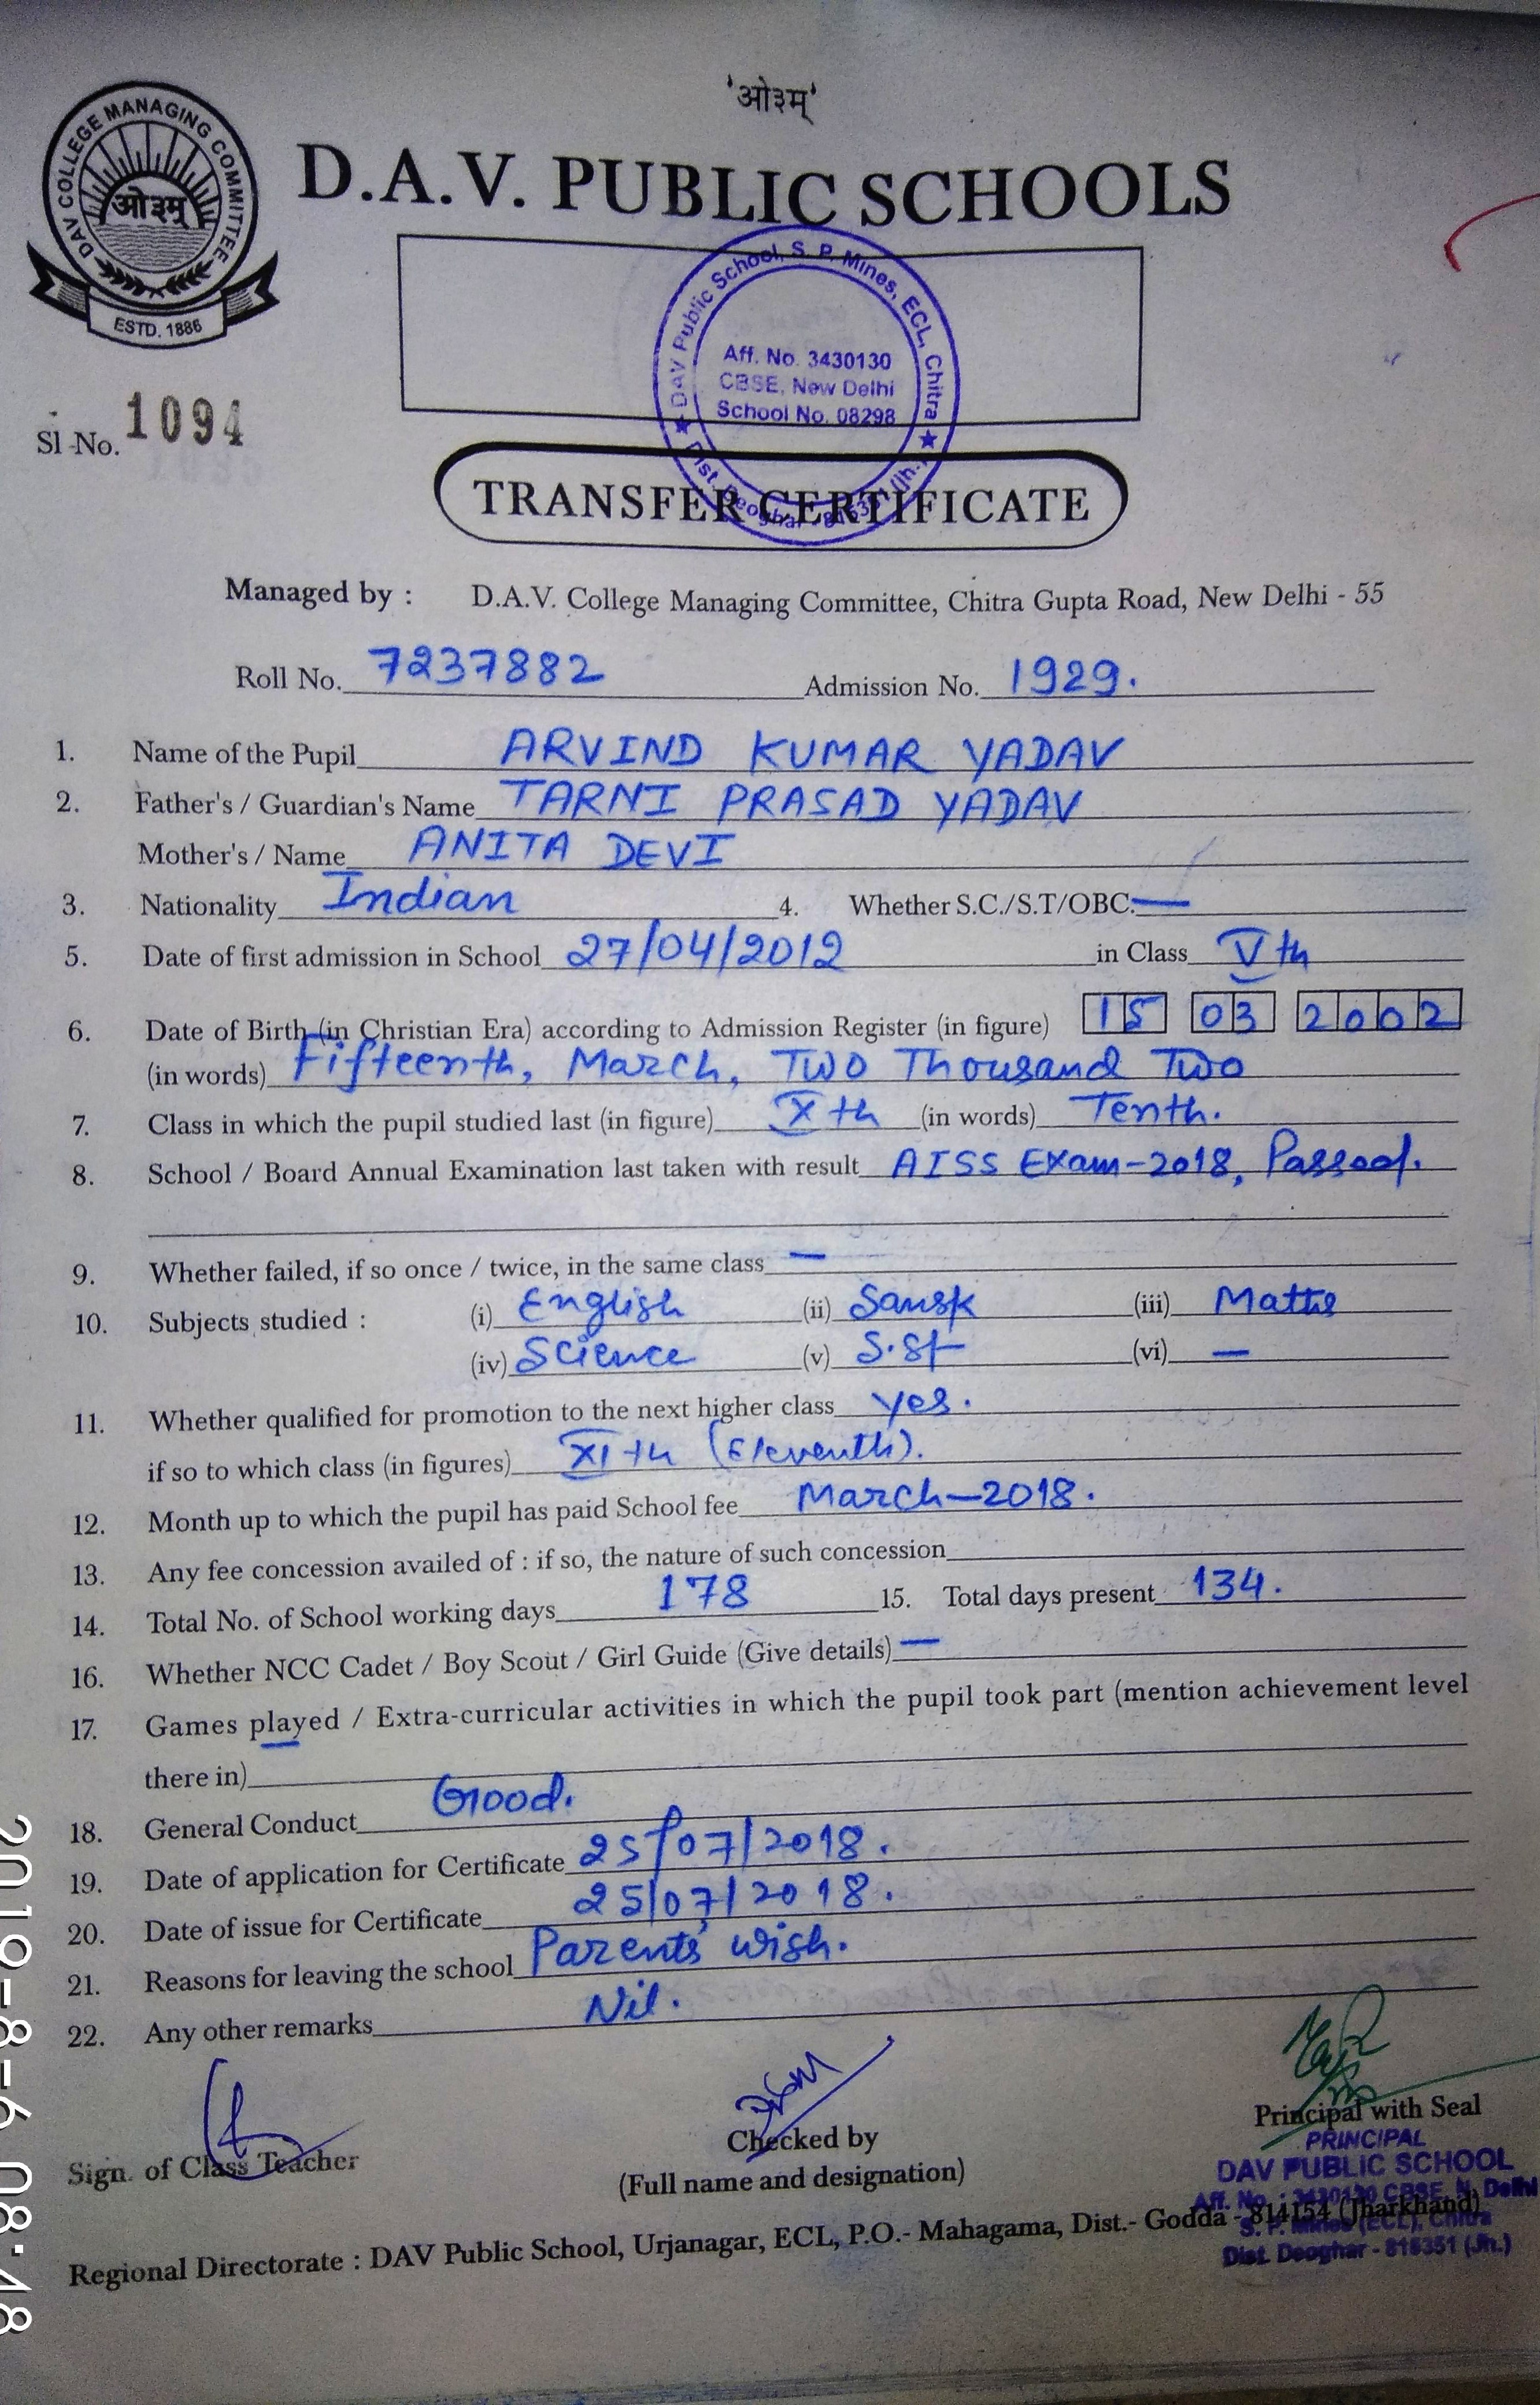 'ओ३म्'
DAV COLLEGE MANAGING COMMITTEE
ओ३म्
ESTD. 1886
D.A.V. PUBLIC SCHOOLS
DAV Public School, S. P. Mines, ECL, Chitra
Aff. No. 3430130
CBSE, New Delhi
School No. 08298
Dist. Deoghar - 815351 (Jh.)
Sl No. 1094
TRANSFER CERTIFICATE
Managed by : D.A.V. College Managing Committee, Chitra Gupta Road, New Delhi - 55
Roll No. 7237882 Admission No. 1929.
1. Name of the Pupil ARVIND KUMAR YADAV
2. Father's / Guardian's Name TARNI PRASAD YADAV
Mother's / Name ANITA DEVI
3. Nationality Indian 4. Whether S.C./S.T/OBC. —
5. Date of first admission in School 27/04/2012 in Class Vth
6. Date of Birth (in Christian Era) according to Admission Register (in figure) 15 03 2002
(in words) Fifteenth, March, Two Thousand Two
7. Class in which the pupil studied last (in figure) Xth (in words) Tenth.
8. School / Board Annual Examination last taken with result AISS Exam-2018, Passed.
9. Whether failed, if so once / twice, in the same class —
10. Subjects studied : (i) English (ii) Sansk (iii) Maths
(iv) Science (v) S.St (vi) —
11. Whether qualified for promotion to the next higher class yes.
if so to which class (in figures) XIth (Eleventh).
12. Month up to which the pupil has paid School fee March-2018.
13. Any fee concession availed of : if so, the nature of such concession
14. Total No. of School working days 178 15. Total days present 134.
16. Whether NCC Cadet / Boy Scout / Girl Guide (Give details) —
17. Games played / Extra-curricular activities in which the pupil took part (mention achievement level
there in)
18. General Conduct Good.
19. Date of application for Certificate 25/07/2018.
20. Date of issue for Certificate 25/07/2018.
21. Reasons for leaving the school Parents' wish.
22. Any other remarks Nil.
Sign. of Class Teacher
Checked by
(Full name and designation)
Principal with Seal
PRINCIPAL
DAV PUBLIC SCHOOL
Aff. No. : 3430130 CBSE, N. Delhi
S. P. Mines (ECL), Chitra
Dist. Deoghar - 815351 (Jh.)
Regional Directorate : DAV Public School, Urjanagar, ECL, P.O.- Mahagama, Dist.- Godda - 814154 (Jharkhand)
2019-8-6 08:48